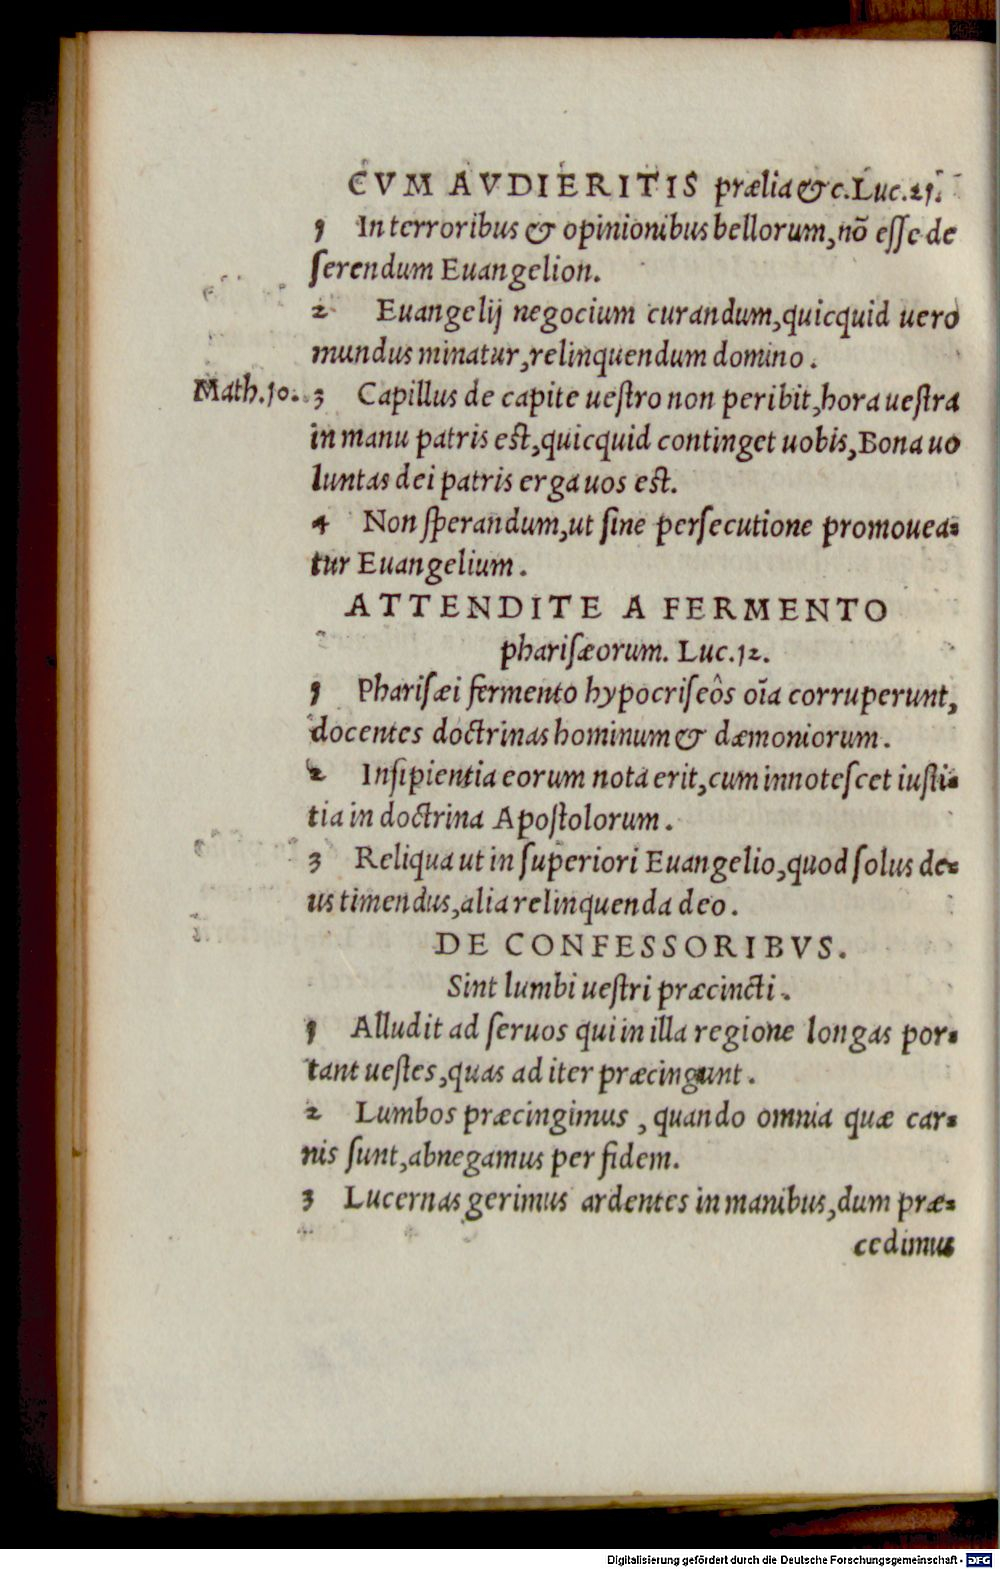 CVM AVDIERITIS prælia &c. Luc. 21.
1 In terroribus & opinionibus bellorum, nõ eſſe de
ſerendum Euangelion.
2 Euangelij negocium curandum, quicquid uero
mundus minatur, relinquendum domino.
Math. 10. 3 Capillus de capite ueſtro non peribit, hora ueſtra
in manu patris eſt, quicquid continget uobis, Bona uo
luntas dei patris erga uos eſt.
4 Non ſperandum, ut ſine perſecutione promouea-
tur Euangelium.
ATTENDITE A FERMENTO
phariſæorum. Luc. 12.
1 Phariſæi fermento hypocriſeôs oĩa corruperunt,
docentes doctrinas hominum & dæmoniorum.
2 Inſipientia eorum nota erit, cum innoteſcet iuſti-
tia in doctrina Apoſtolorum.
3 Reliqua ut in ſuperiori Euangelio, quod ſolus de-
us timendus, alia relinquenda deo.
DE CONFESSORIBVS.
Sint lumbi ueſtri præcincti.
1 Alludit ad ſeruos qui in illa regione longas por-
tant ueſtes, quas ad iter præcingunt.
2 Lumbos præcingimus, quando omnia quæ car-
nis ſunt, abnegamus per fidem.
3 Lucernas gerimus ardentes in manibus, dum præ-
cedimus
Digitalisierung gefördert durch die Deutsche Forschungsgemeinschaft - DFG